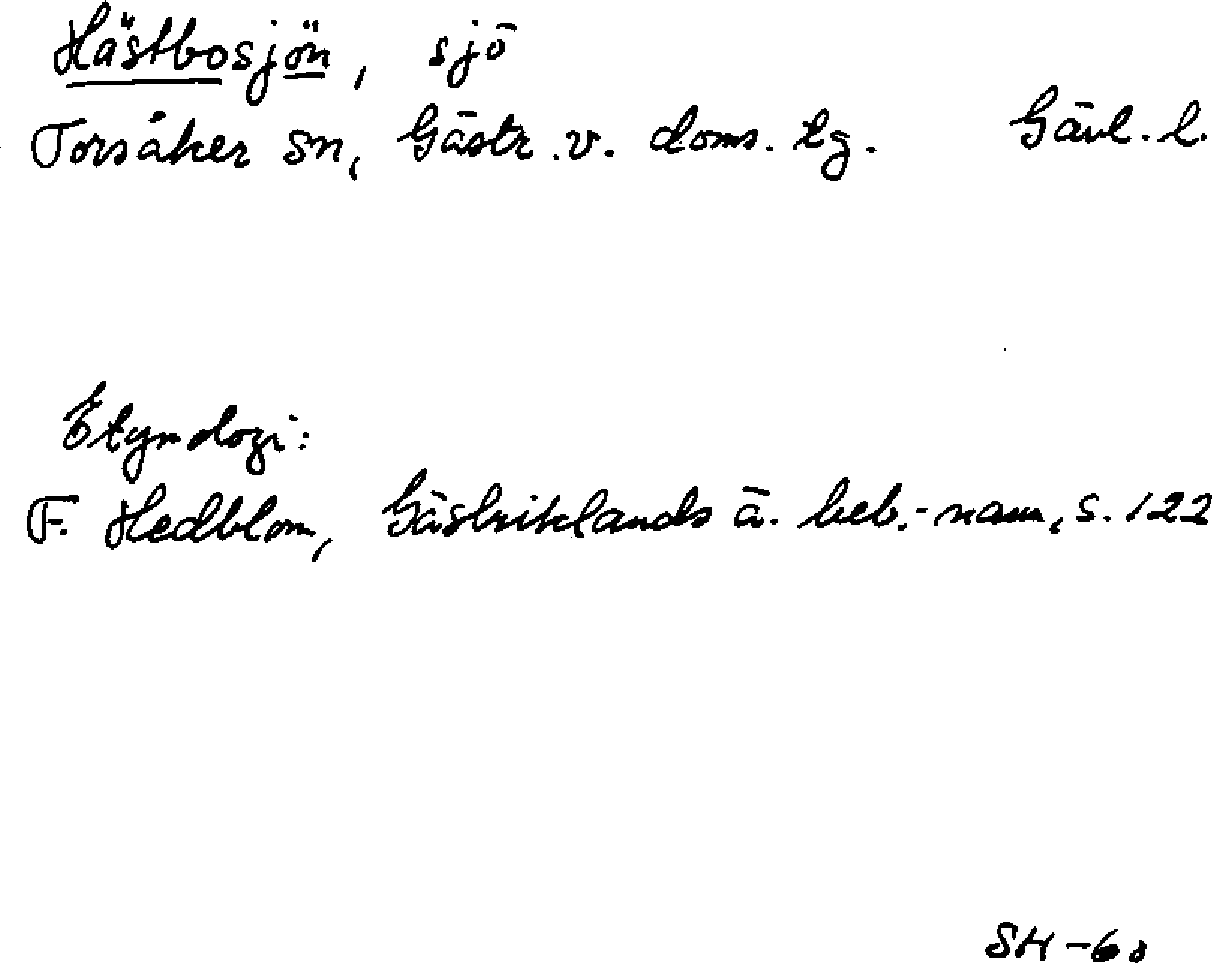 Hästbosjön, sjö
Torsåker sn, Gästr. v. doms. tg. Gävl. l.
Etymologi:
F. Hedblom, Gästriklands ä. beb.-namn, s. 122
SH-60